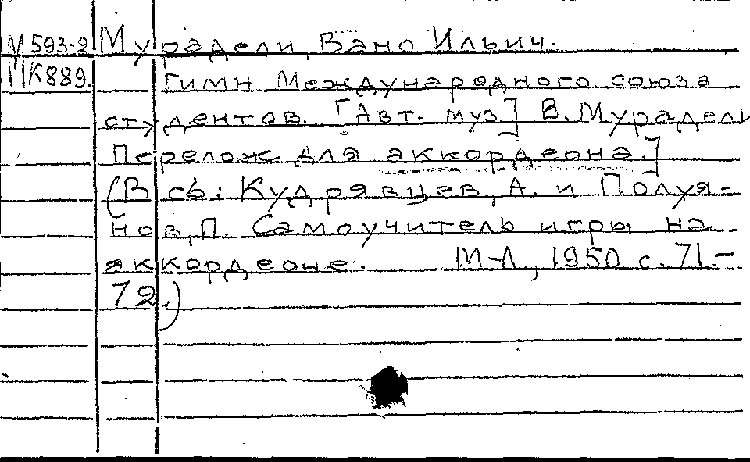 М 593-2 Мурадели, Вано Ильич.
ПК889. Гимн Международного союза
студентов. [Авт. муз] В. Мурадели
Перелож. для аккордеона.]
(В сб.: Кудрявцев, А. и Полуя-
нов, П. Самоучитель игры на
аккордеоне. М-Л, 1950 с. 71-
72.)